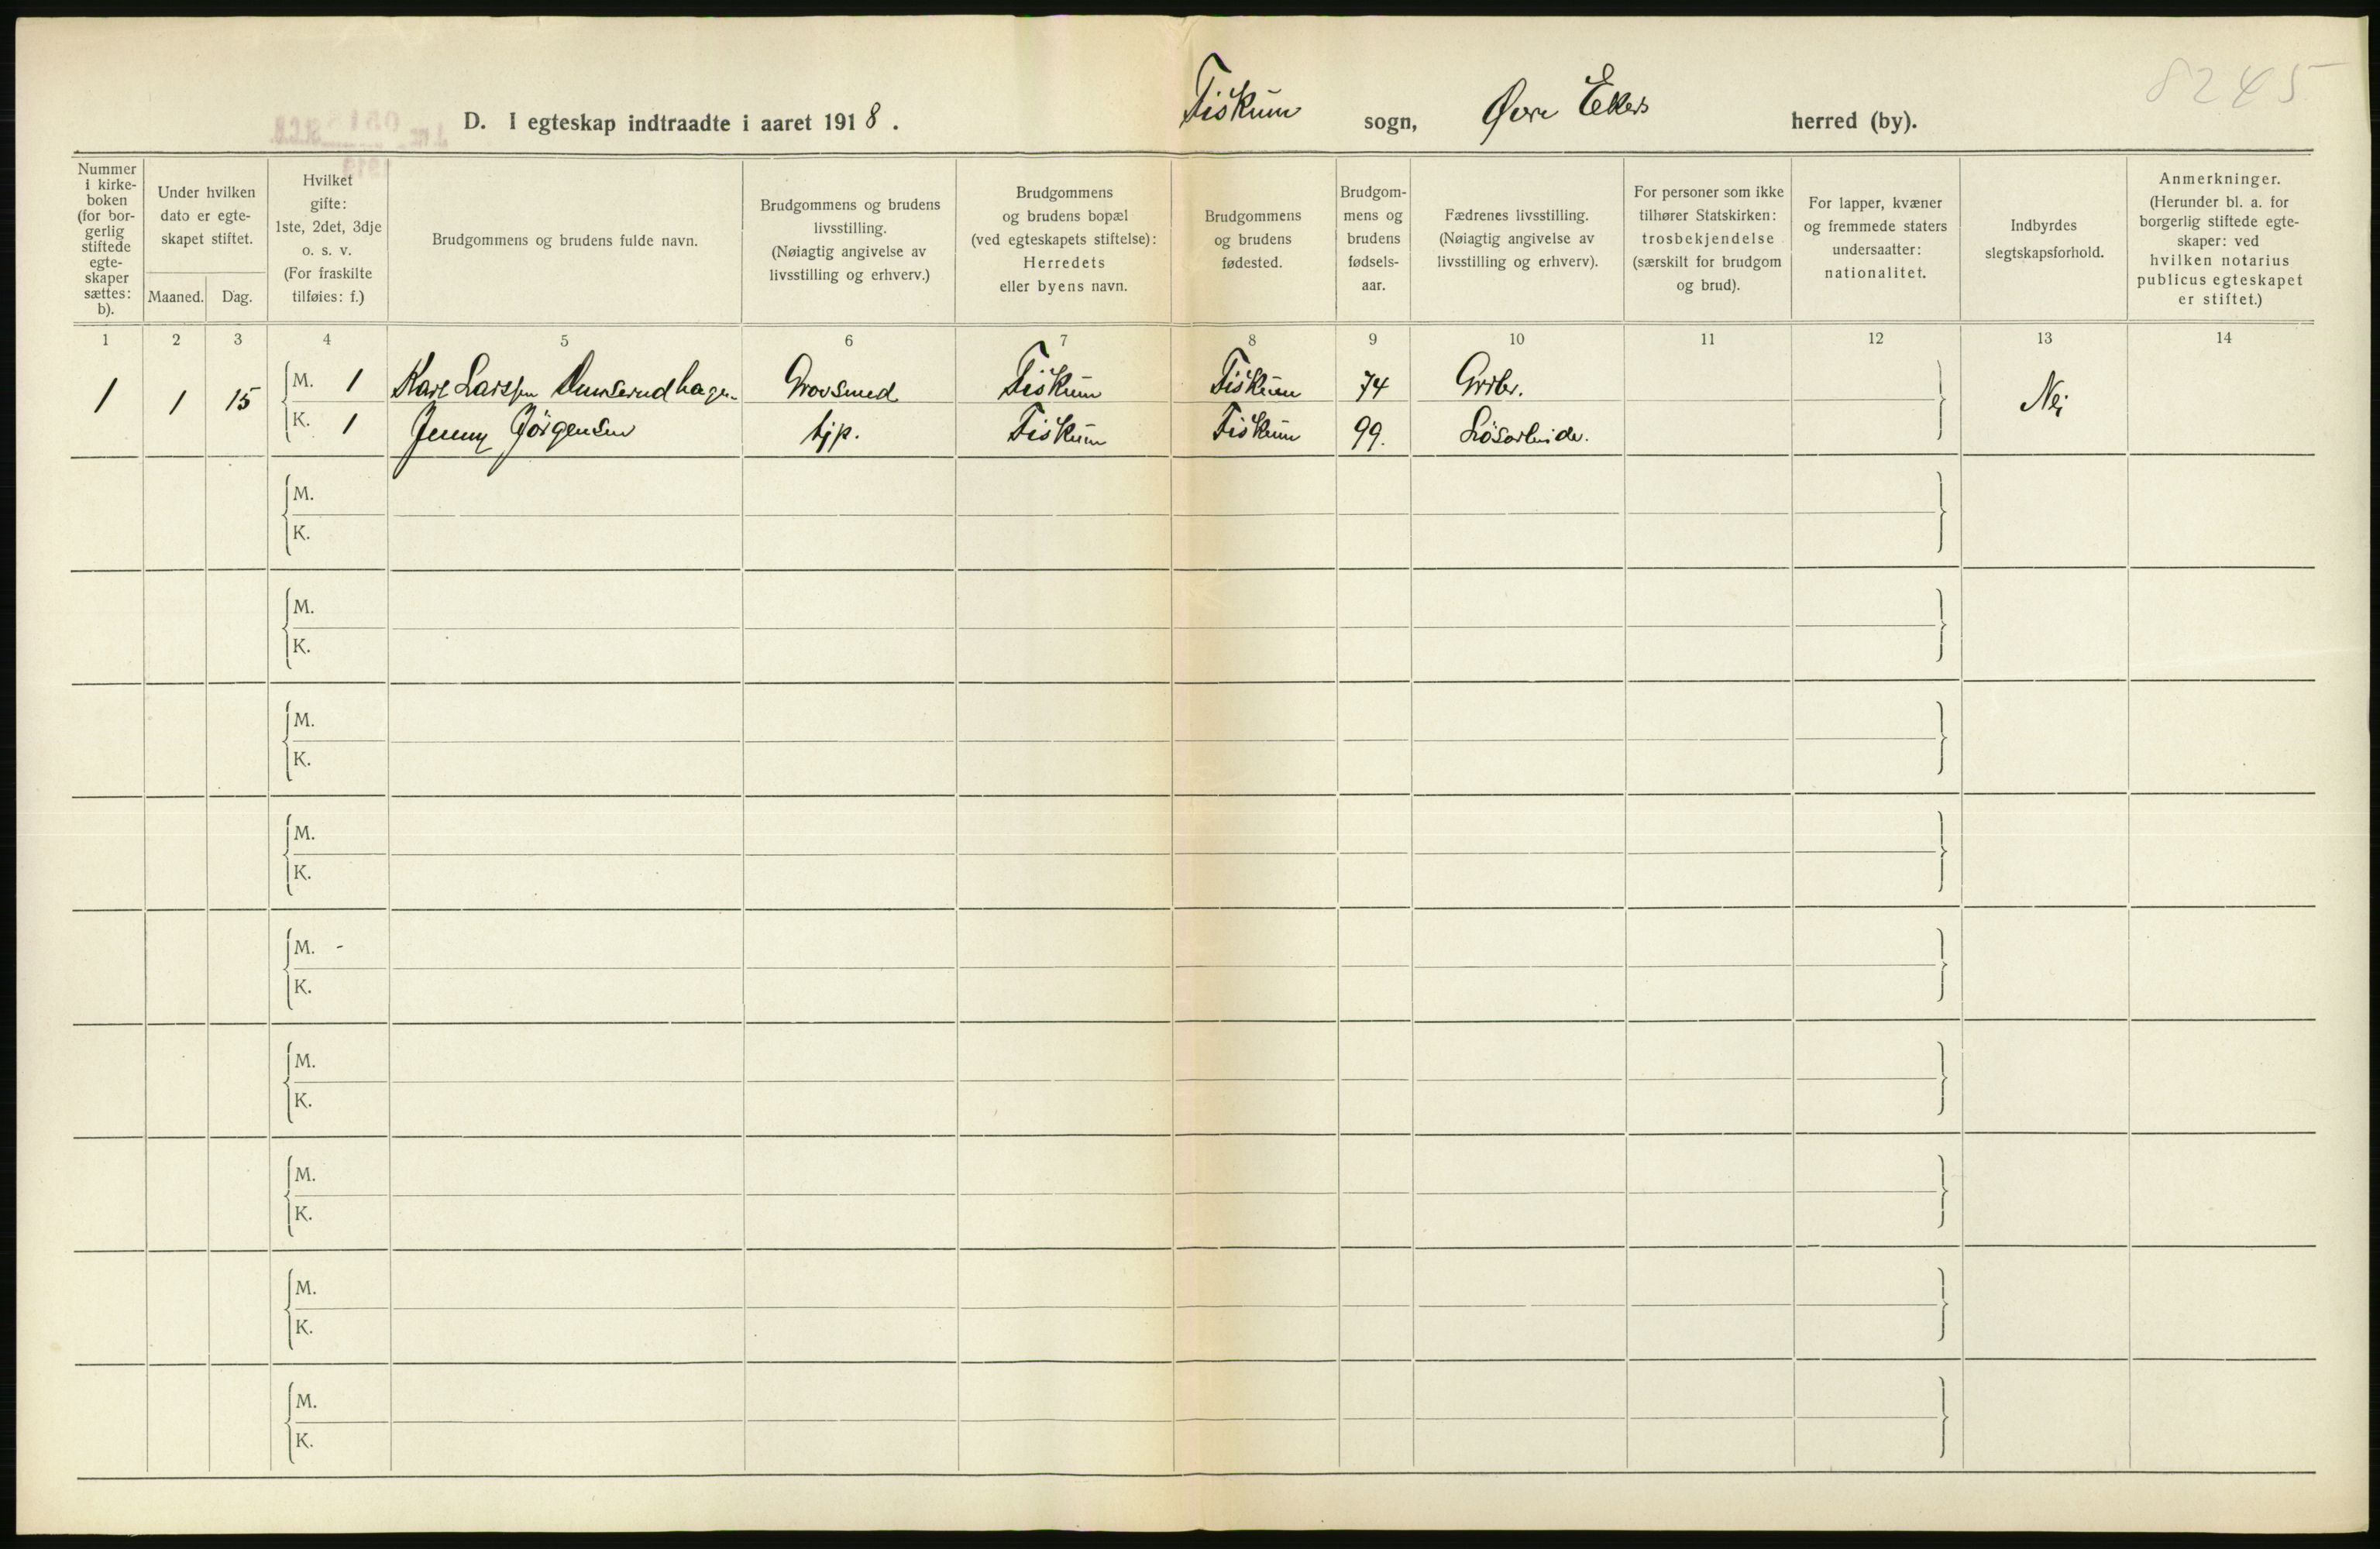 8245
D. I egteskap indtraadte i aaret 1918. Fiskum sogn, Øvre Ekers herred (by).
Nummer i kirke- boken (for bor- gerlig stiftede egte- skaper sættes: b).
Under hvilken dato er egte- skapet stiftet.
Maaned. Dag.
Hvilket gifte: 1ste, 2det, 3dje o. s. v. (For fraskilte tilføies: f.)
Brudgommens og brudens fulde navn.
Brudgommens og brudens livsstilling. (Nøiagtig angivelse av livsstilling og erhverv.)
Brudgommens og brudens bopæl (ved egteskapets stiftelse): Herredets eller byens navn.
Brudgommens og brudens fødested.
Brudgom- mens og brudens fødsels- aar.
Fædrenes livsstilling. (Nøiagtig angivelse av livsstilling og erhverv).
For personer som ikke tilhører Statskirken: trosbekjendelse (særskilt for brudgom og brud).
For lapper, kvæner og fremmede staters undersaatter: nationalitet.
Indbyrdes slegtskapsforhold.
Anmerkninger. (Herunder bl. a. for borgerlig stiftede egte- skaper: ved hvilken notarius publicus egteskapet er stiftet.)
1 2 3 4 5 6 7 8 9 10 11 12 13 14
1 1 15 M. 1 Karl Larssen Grovsmed Fiskum Fiskum 74 Grbr. Nei
K. 1 Jenny Jörgensen tjp. Fiskum Fiskum 99. Lösarbeider.
M.
K.
M.
K.
M.
K.
M.
K.
M. -
K.
M.
K.
M.
K.
M.
K.
M.
K.